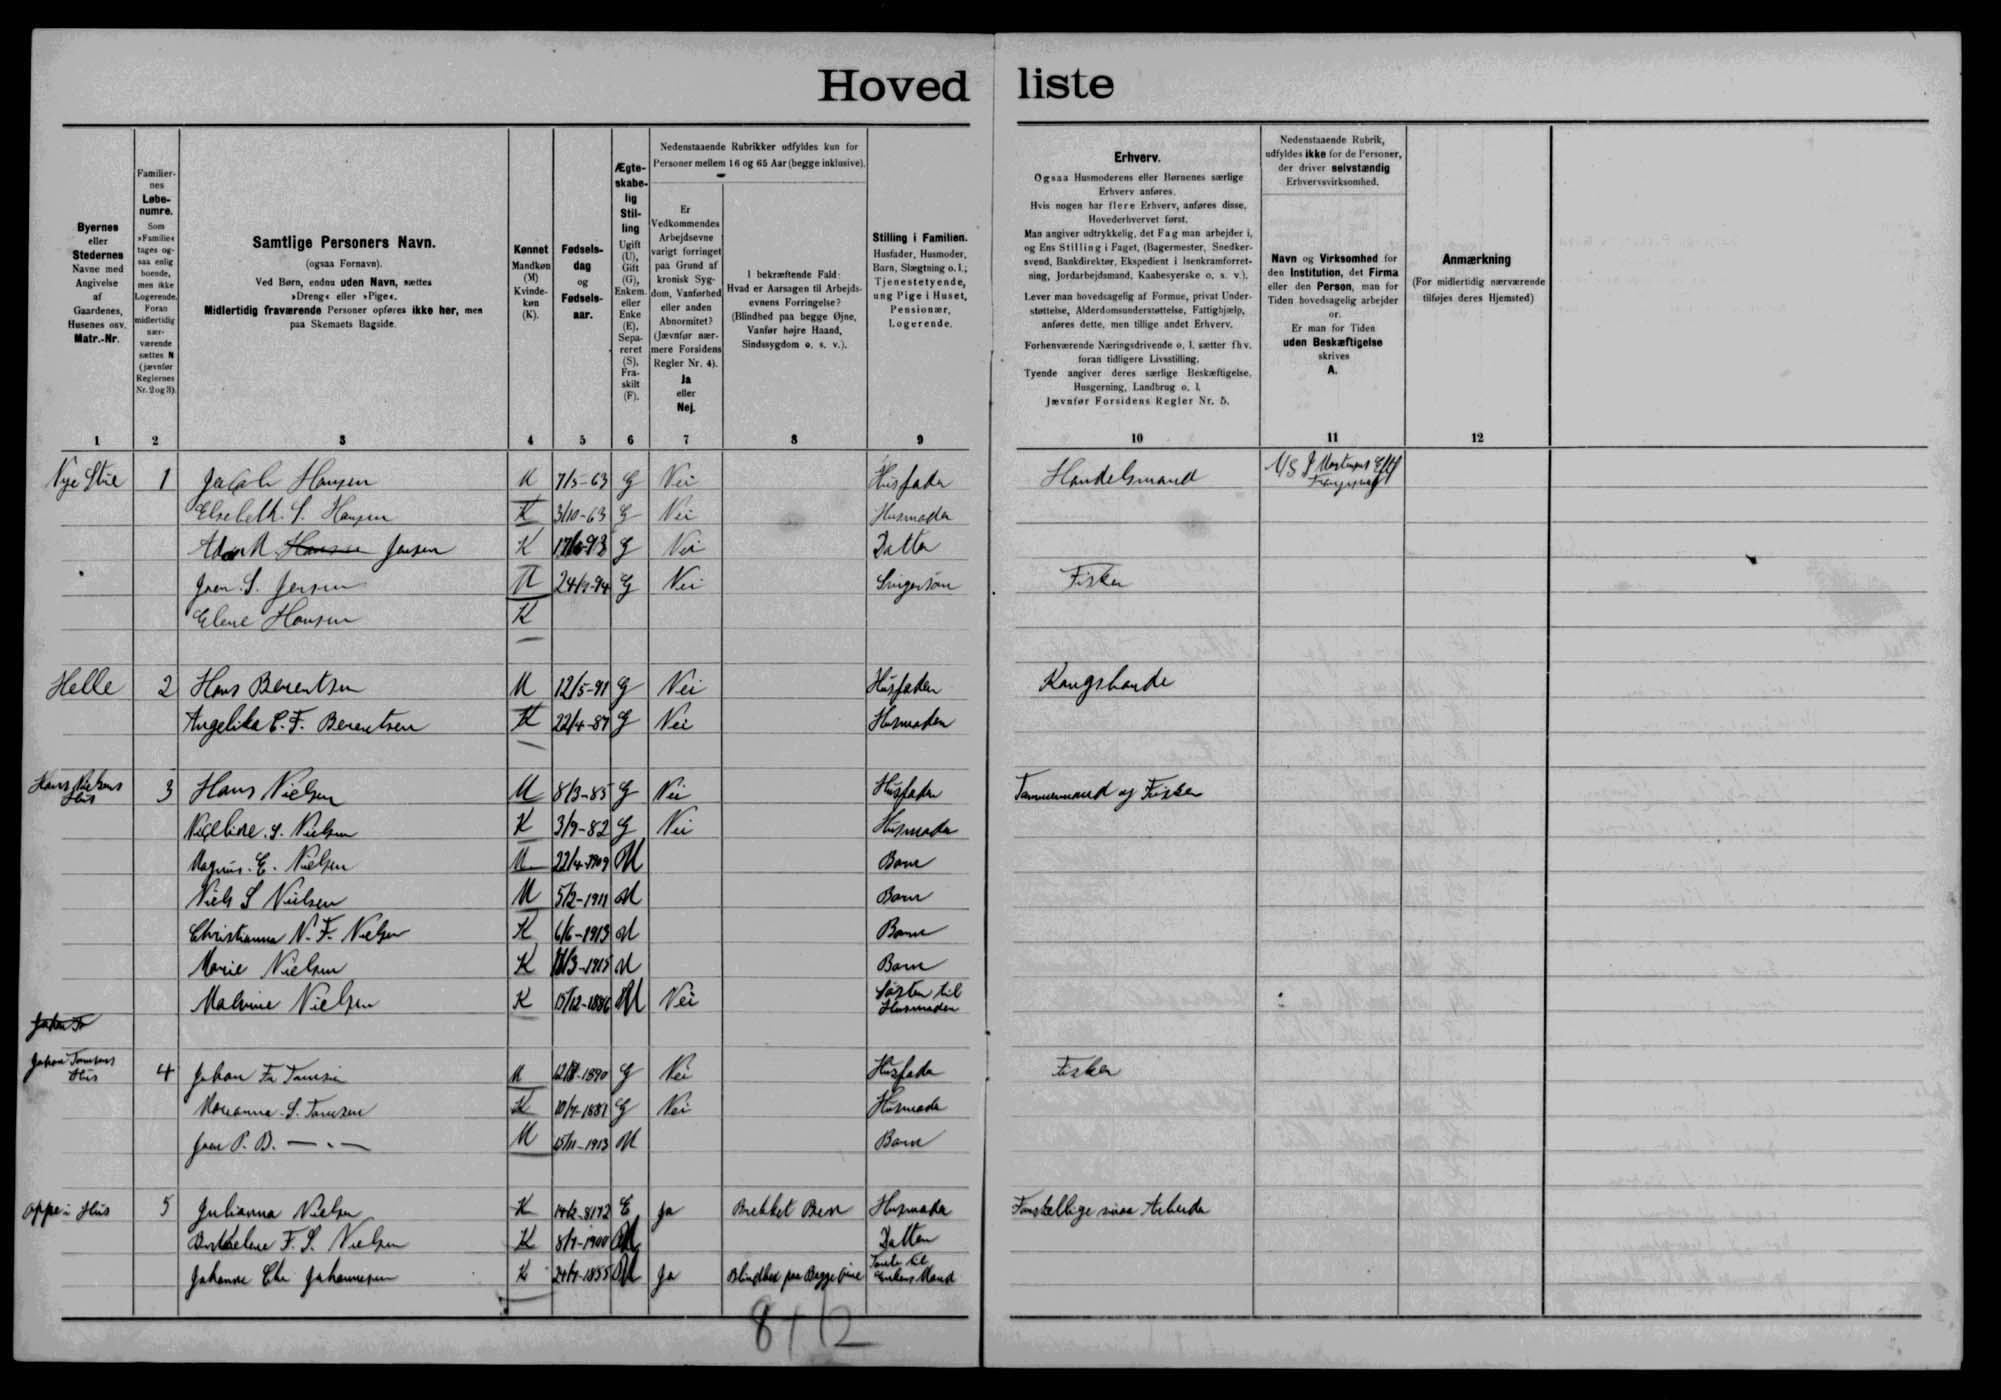 Hovedliste
Byernes eller Stedernes Navne med Angivelse af Gaardenes, Husenes osv. Matr.-Nr.
Familiernes Løbenumre. Som »Familie« tages ogsaa enlig boende, men ikke Logerende. Foran midlertidig nærværende sættes N (jævnfør Reglernes Nr. 2 og 3).
Samtlige Personers Navn.
(ogsaa Fornavn).
Ved Børn, endnu uden Navn, sættes »Dreng« eller »Pige«.
Midlertidig fraværende Personer opføres ikke her, men paa Skemaets Bagside.
Kønnet Mandkøn (M) Kvindekøn (K).
Fødselsdag og Fødselsaar.
Ægteskabelig Stilling Ugift (U), Gift (G), Enkemand eller Enke (E), Separeret (S), Fraskilt (F).
Nedenstaaende Rubrikker udfyldes kun for Personer mellem 16 og 65 Aar (begge inklusive).
Er Vedkommendes Arbejdsevne varigt forringet paa Grund af kronisk Sygdom, Vanførhed eller anden Abnormitet? (Jævnfør nærmere Forsidens Regler Nr. 4). Ja eller Nej.
I bekræftende Fald: Hvad er Aarsagen til Arbejdsevnens Forringelse? (Blindhed paa begge Øjne, Vanfør højre Haand, Sindssygdom o. s. v.).
Stilling i Familien.
Husfader, Husmoder, Barn, Slægtning o. l.; Tjenestetyende, ung Pige i Huset, Pensionær, Logerende.
Erhverv.
Ogsaa Husmoderens eller Børnenes særlige Erhverv anføres.
Hvis nogen har flere Erhverv, anføres disse, Hovederhvervet først.
Man angiver udtrykkelig, det Fag man arbejder i, og Ens Stilling i Faget, (Bagermester, Snedkersvend, Bankdirektør, Ekspedient i Isenkramforretning, Jordarbejdsmand, Kaabesyerske o. s. v.).
Lever man hovedsagelig af Formue, privat Understøttelse, Alderdomsunderstøttelse, Fattighjælp, anføres dette, men tillige andet Erhverv.
Forhenværende Næringsdrivende o. l. sætter fhv. foran tidligere Livsstilling.
Tyende angiver deres særlige Beskæftigelse, Husgerning, Landbrug o. l.
Jævnfør Forsidens Regler Nr. 5.
Nedenstaaende Rubrik, udfyldes ikke for de Personer, der driver selvstændig Erhvervsvirksomhed.
Navn og Virksomhed for den Institution, det Firma eller den Person, man for Tiden hovedsagelig arbejder or.
Er man for Tiden uden Beskæftigelse skrives A.
Anmærkning
(For midlertidig nærværende tilføjes deres Hjemsted)
1 2 3 4 5 6 7 8 9 10 11 12
Nye Stue 1 Jacob Hansen M 7/5-63 G Nei Husfader Handelsmand
Elsebeth. S. Hansen K 3/10-63 G Nei Husmoder
Hansen Jensen K G Nei Datter
Joen. S. Jensen M G Nei Svigersøn Fisker
Elene Hansen K
Helle 2 Hans Berentsen M 12/5-91 G Nei Husfader Kongsbonde
Angelika C. F. Berentsen K 22/4-87 G Nei Husmoder
Hans Nielsens Hus 3 Hans Nielsen M 8/3-85 G Nei Husfader Tømmermand og Fisker
Nielsen K 3/9-82 G Nei Husmoder
Magnus. E. Nielsen M 22/4-1909 U Barn
Niels S Nielsen M 5/2-1911 U Barn
Christianna N. F. Nielsen K 6/6-1913 U Barn
Marie Nielsen K U Barn
Malvine Nielsen K 15/12-1886 U Nei Søster til Husmoder
Johan Fr
Johan Tomsens Hus 4 Johan Fr Tomsen M G Nei Husfader Fisker
Marianna. S. Tomsen K 10/7-1887 G Nei Husmoder
Joen P. D. — . — M 15/11-1913 U Barn
Oppe i Hus 5 Julianna Nielsen K E Ja Brækket Ben Husmoder Forskellige smaa Arbeider
F. S. Nielsen K 8/7-1900 U Datter
Johanne Chr Johannesen K 24/7-1855 U Ja Blindhed paa Begge Øine Tante til Enkens Mand
8 + 12